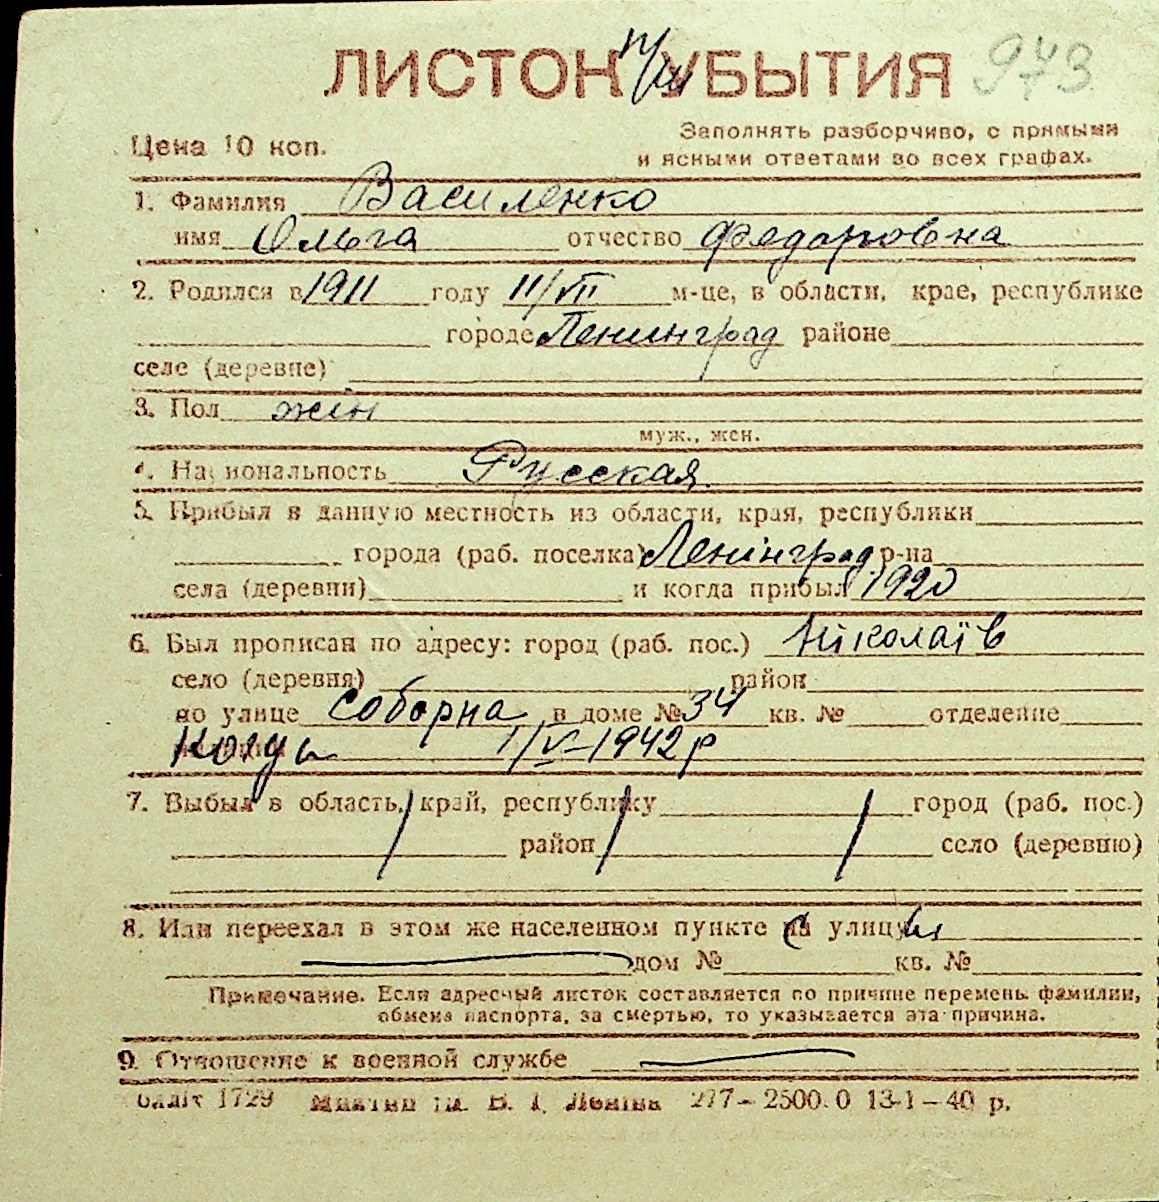 ЛИСТОК УБЫТИЯ 973
Цена 10 коп.
Заполнять разборчиво, с прямыми
и ясными ответами во всех графах.
1. Фамилия Василенко
имя Ольга отчество Федоровна
2. Родился в 1911 году 11/VII м-це, в области, крае, республике
городе Ленинград районе
селе (деревне)
3. Пол жін
муж., жен.
4. Национальность Русская
5. Прибыл в данную местность из области, края, республики
города (раб. поселка) Ленінград р-на
села (деревни) и когда прибыл 1920
6. Был прописан по адресу: город (раб. пос.) Ніколаїв
село (деревня) район
по улице Соборна в доме № 34 кв. № отделение
Когда 1/V-1942 р
7. Выбыл в область, край, республику город (раб. пос.)
район село (деревню)
8. Или переехал в этом же населенном пункте улицу
дом № кв. №
Примечание. Если адресный листок составляется по причине перемены фамилии,
обмена паспорта, за смертью, то указывается эта причина.
9. Отношение к военной службе
1729 ім. В. І. Леніна 277–2500.0 13-1–40 р.